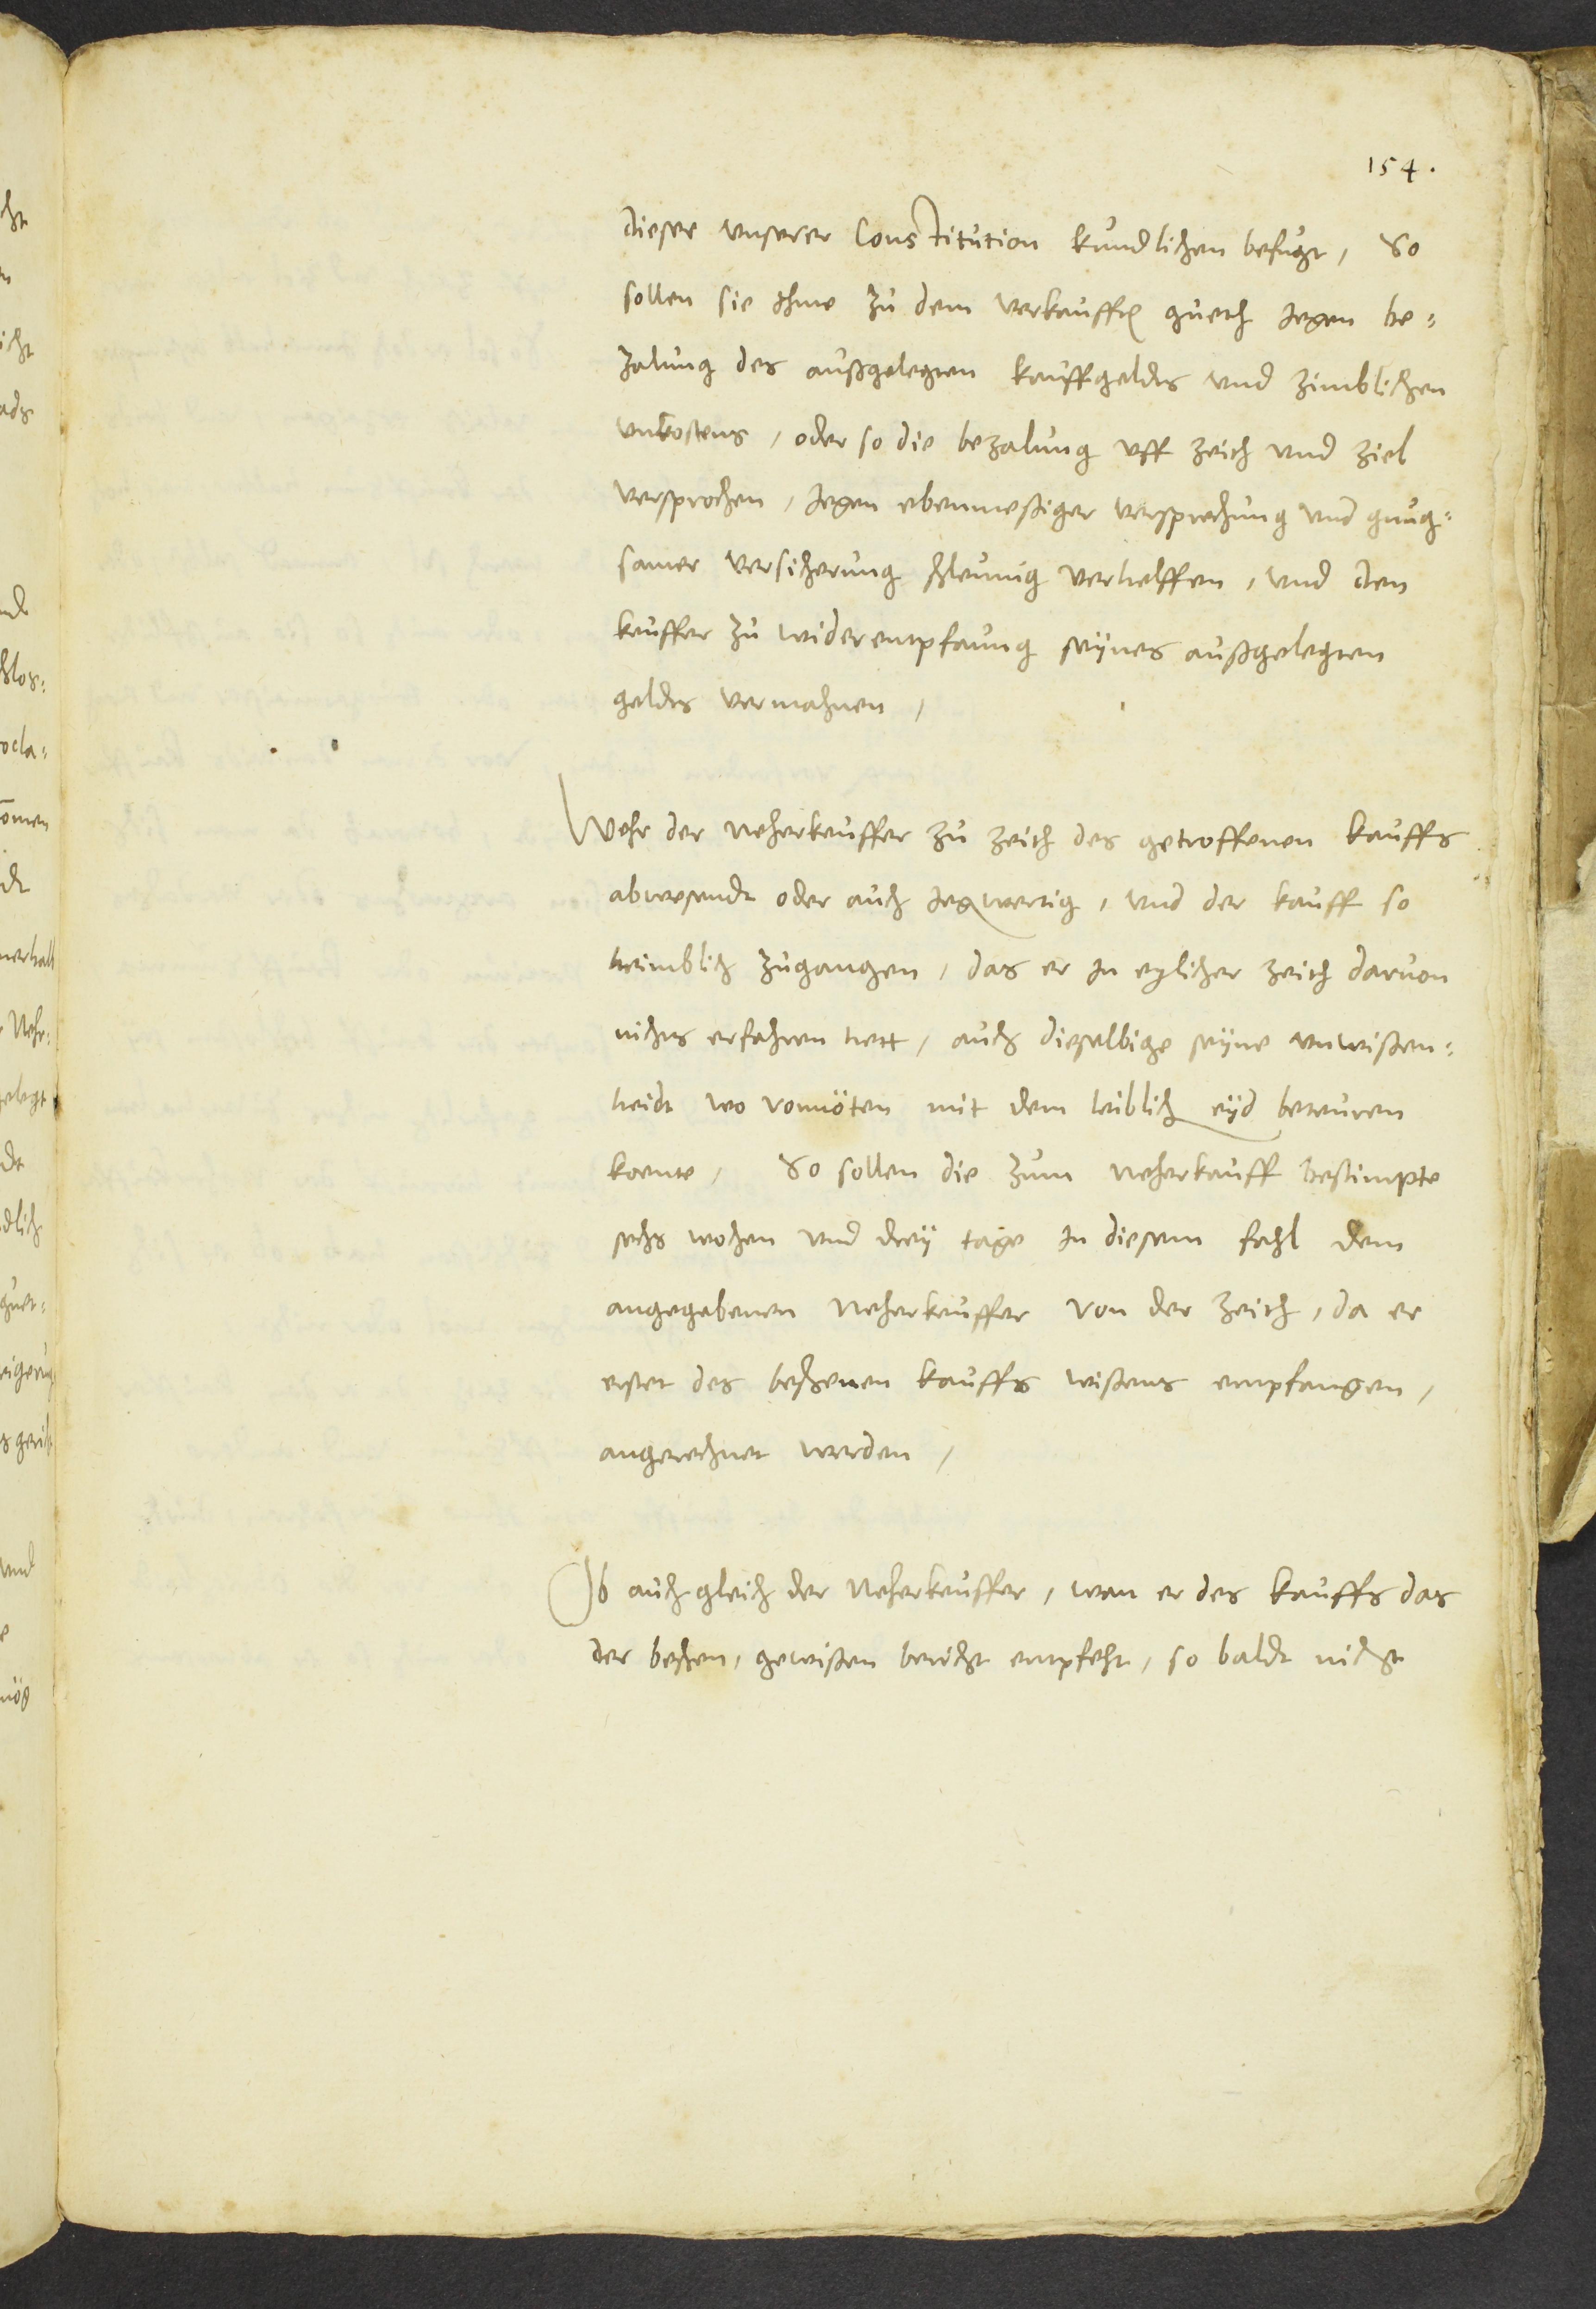 154.
dieser unserer Constitution kundlichen befugt, So
sollen sie ihme zu dem verkaufften gueth jegen be-
zalung des außgelegten kauffgeldts und zimblichen
unkostens, oder so die bezalung uff zeith und ziel
versprochen, jegen ebenmeßiger versprechung und gnug-
samer versicherung schleunig verhelffen, und den
keuffer zu widerentpfaung seÿnes außgelegten
geldts vermahnen,
Wehr der Neherkeuffer zu zeith des getroffenen kauffs
abwesendt oder auch jegwertig, und der kauff so
heimblich zugangen, das er in etzlicher zeith darvon
nichts erfahren hett, auch dieselbige seÿne unwißen-
heidt wo vonnöten mit dem leiblich eÿd beteuren
koente, So sollen die zum Neherkauff bestimpte
sechs wochen und dreÿ tage in diesem fahl dem
angegebenen Neherkeuffer von der zeith, da er
erstet des beschenen kauffs wißens entpfangen,
angerechnet werden,
Ob auch gleich der Neherkeuffer, wan er des kauffs das
der beschen, gewißen bericht entpfeht, so baldt nicht